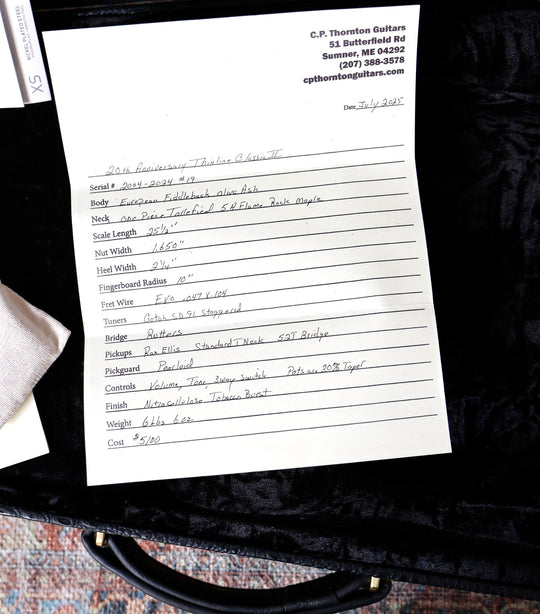 NICKEL PLATED STEEL
XS
C.P. Thornton Guitars
51 Butterfield Rd
Sumner, ME 04292
(207) 388-3578
cpthorntonguitars.com
Date July 2025
20th Anniversary Thinline Classic II
Serial # 2004-2024 #19
Body European Fiddleback Olive Ash
Neck One Piece Torrefied 5A Flame Rock Maple
Scale Length 25 1/2"
Nut Width 1.650"
Heel Width 2 1/4"
Fingerboard Radius 10"
Fret Wire Evo .047 x .104
Tuners Gotoh SD91 Staggered
Bridge Rutters
Pickups Ron Ellis Standard T Neck 52T Bridge
Pickguard Pearloid
Controls Volume, Tone, 3way switch Pots are 30% Taper
Finish Nitrocellulose Tobacco Burst
Weight 6 lbs 6 oz
Cost $5100